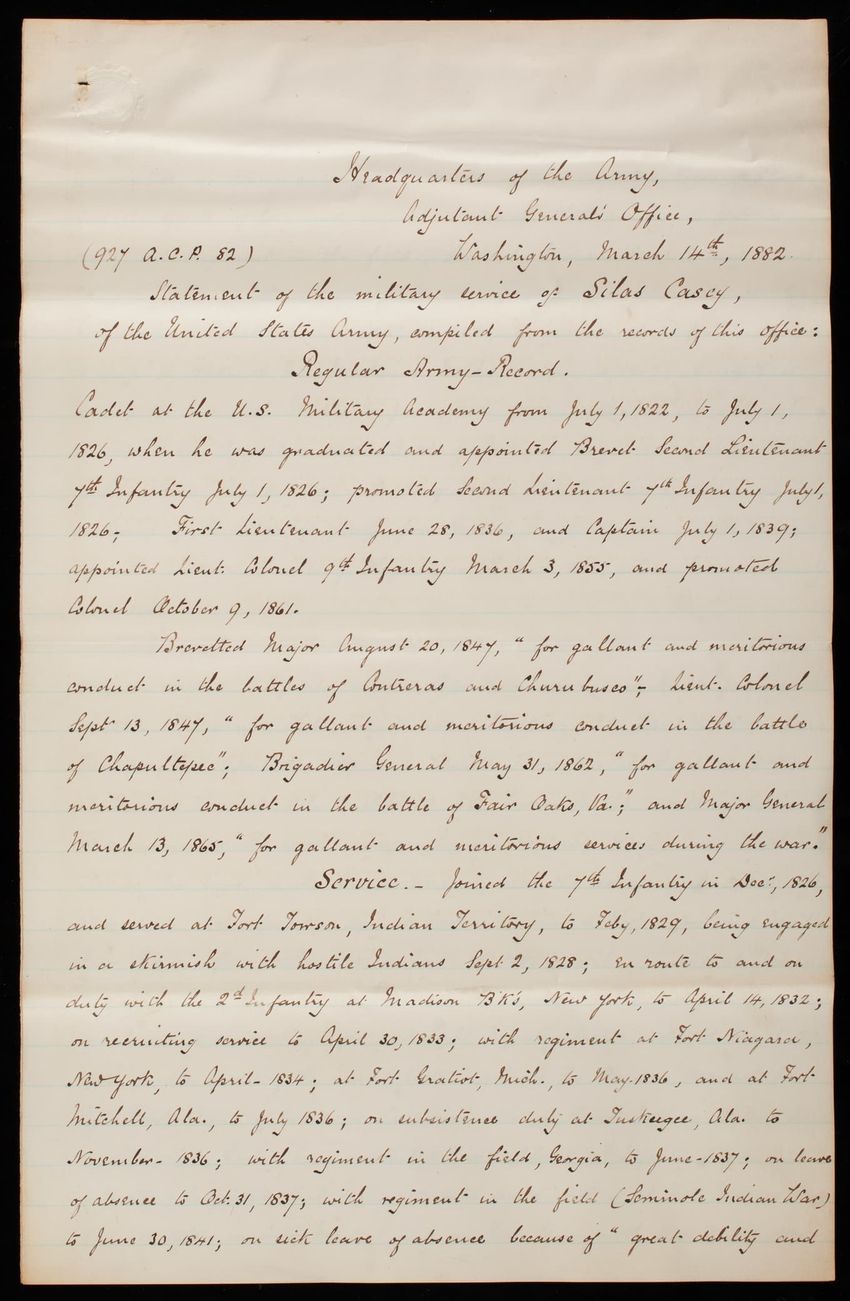 Headquarters of the Army,
Adjutant General's Office,
(927 A.C.P. 82) Washington, March 14th, 1882.
Statement of the military service of Silas Casey,
of the United States Army, compiled from the records of this office:
Regular Army-Record.
Cadet at the U.S. Military Academy from July 1, 1822, to July 1,
1826, when he was graduated and appointed Brevet Second Lieutenant
7th Infantry July 1, 1826; promoted Second Lieutenant 7th Infantry July 1,
1826; First Lieutenant June 28, 1836, and Captain July 1, 1839;
appointed Lieut. Colonel 9th Infantry March 3, 1855, and promoted
Colonel October 9, 1861.
Brevetted Major August 20, 1847, "for gallant and meritorious
conduct in the battles of Contreras and Churubusco"; Lieut. Colonel
Sept 13, 1847, "for gallant and meritorious conduct in the battle
of Chapultepec"; Brigadier General May 31, 1862, "for gallant and
meritorious conduct in the battle of Fair Oaks, Va.;" and Major General
March 13, 1865, "for gallant and meritorious services during the war."
Service.- Joined the 7th Infantry in Decr, 1826,
and served at Fort Towson, Indian Territory, to Feby, 1829, being engaged
in a skirmish with hostile Indians Sept 2, 1828; en route to and on
duty with the 2d Infantry at Madison B'k's, New York, to April 14, 1832;
on recruiting service to April 30, 1833; with regiment at Fort Niagara,
New York, to April- 1834; at Fort Gratiot, Mich., to May-1836, and at Fort
Mitchell, Ala., to July 1836; on subsistence duty at Tuskeegee, Ala. to
November- 1836; with regiment in the field, Georgia, to June-1837; on leave
of absence to Oct. 31, 1837; with regiment in the field (Seminole Indian War)
to June 30, 1841; on sick leave of absence because of "great debility and